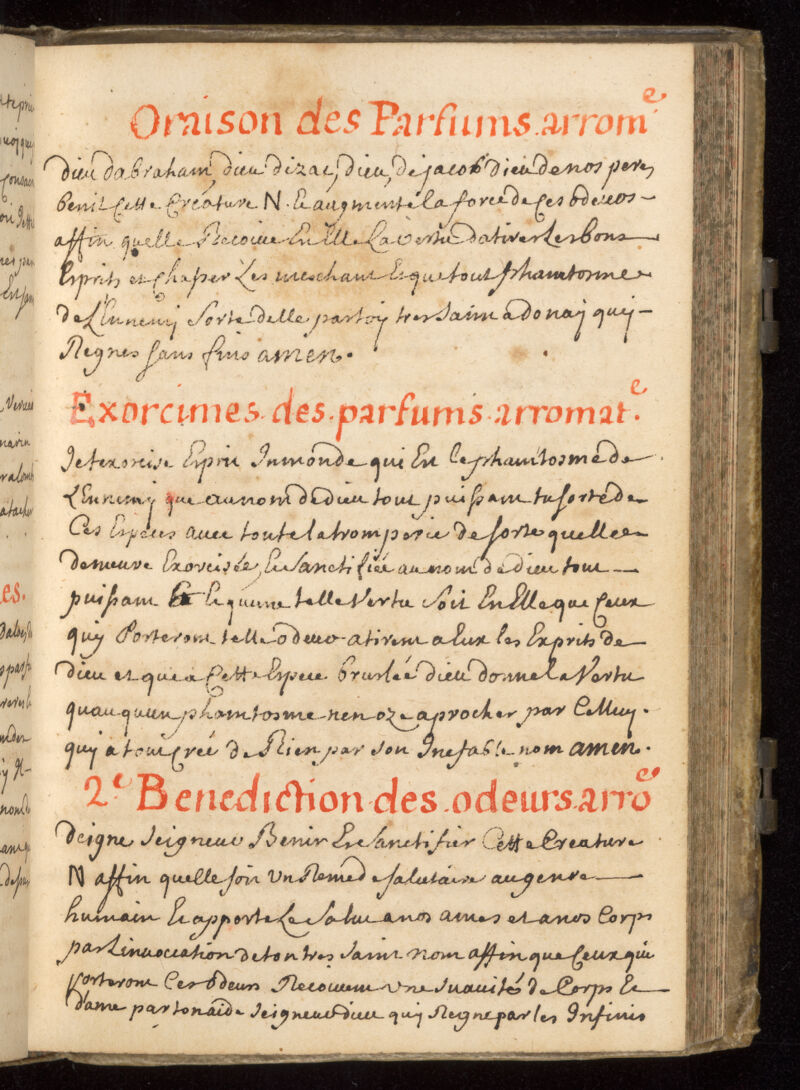 Oraison des Parfums arrom.e
dieu dabraham, dieu dizac, dieu, de jacob dieu de nos peres
benit Cette Créature N. Et augmente la force de Ces odeurs
affin quelle Recoive En Elle La vertu dativer Les bons
Esprits et Chasser Les meschant Et que tout phantosme
de L'Ennemij Sorte delle par toy tres saint adonaij quij
Regnes sans fins amen.
Exorcimes des parfums arromat.e
Je texorcise Esprit Inmonde qui Est le phantosme de
L'Ennemij que au nom de dieu tout puissant tu sorte de
Ces Especes avec toute la tromperie de sorte quelle
demeure Exorcisée, Et Sanctifiée au nom de dieu tout
puissant Et Et quune telle Vertu soit En Elle que Ceux
quij Porteront telle odeur atirent a Eux les Exprits de
dieu et que a Cette Espece bruslée dieu donne la Vertu
quauquun phantosme nen oze aprocher par Celluy
quij a tout Créé de Rien par son Inefable nom amen.
2.e Benediction des odeurs arro.e
deigne Seigneur Benir Et Sanctifier Cette Creature
N affin quelle soit un Remede salutaire au genre
humain Et apporte Le Salut a nos ames et a nos Corps
par Linvocation de ton tres Saint nom affin que Ceux qui
porteront Ces odeurs Recoivent une suavité de Corps Et
dame par ton aide Seigneur dieu quij Regne par les Infinis